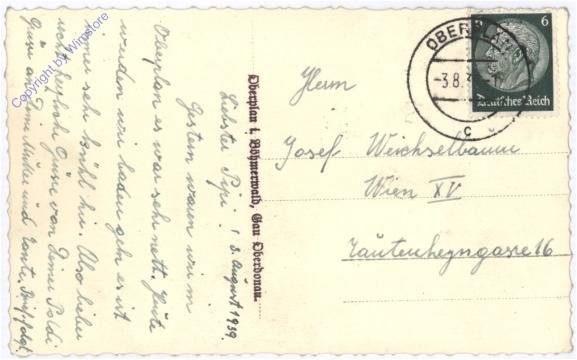 Copyright by Winstore
Oberplan i. Böhmerwald, Gau Oberdonau.
3. August 1939.
Liebster Pepi!
Gestern waren wir in
Oberplan es war sehr nett. Heute
werden wir baden gehn es ist
immer sehr kühl hir. Also lieber
recht herzliche Grüsse von Deiner Poldi
Grüsse an Deine Mutter und Tante. Brief folgt.
OBERPLAN
-3.8.
c
6
Deutsches Reich
Herrn
Josef Weichselbaum
Wien XV
Tautenhayngasse 16